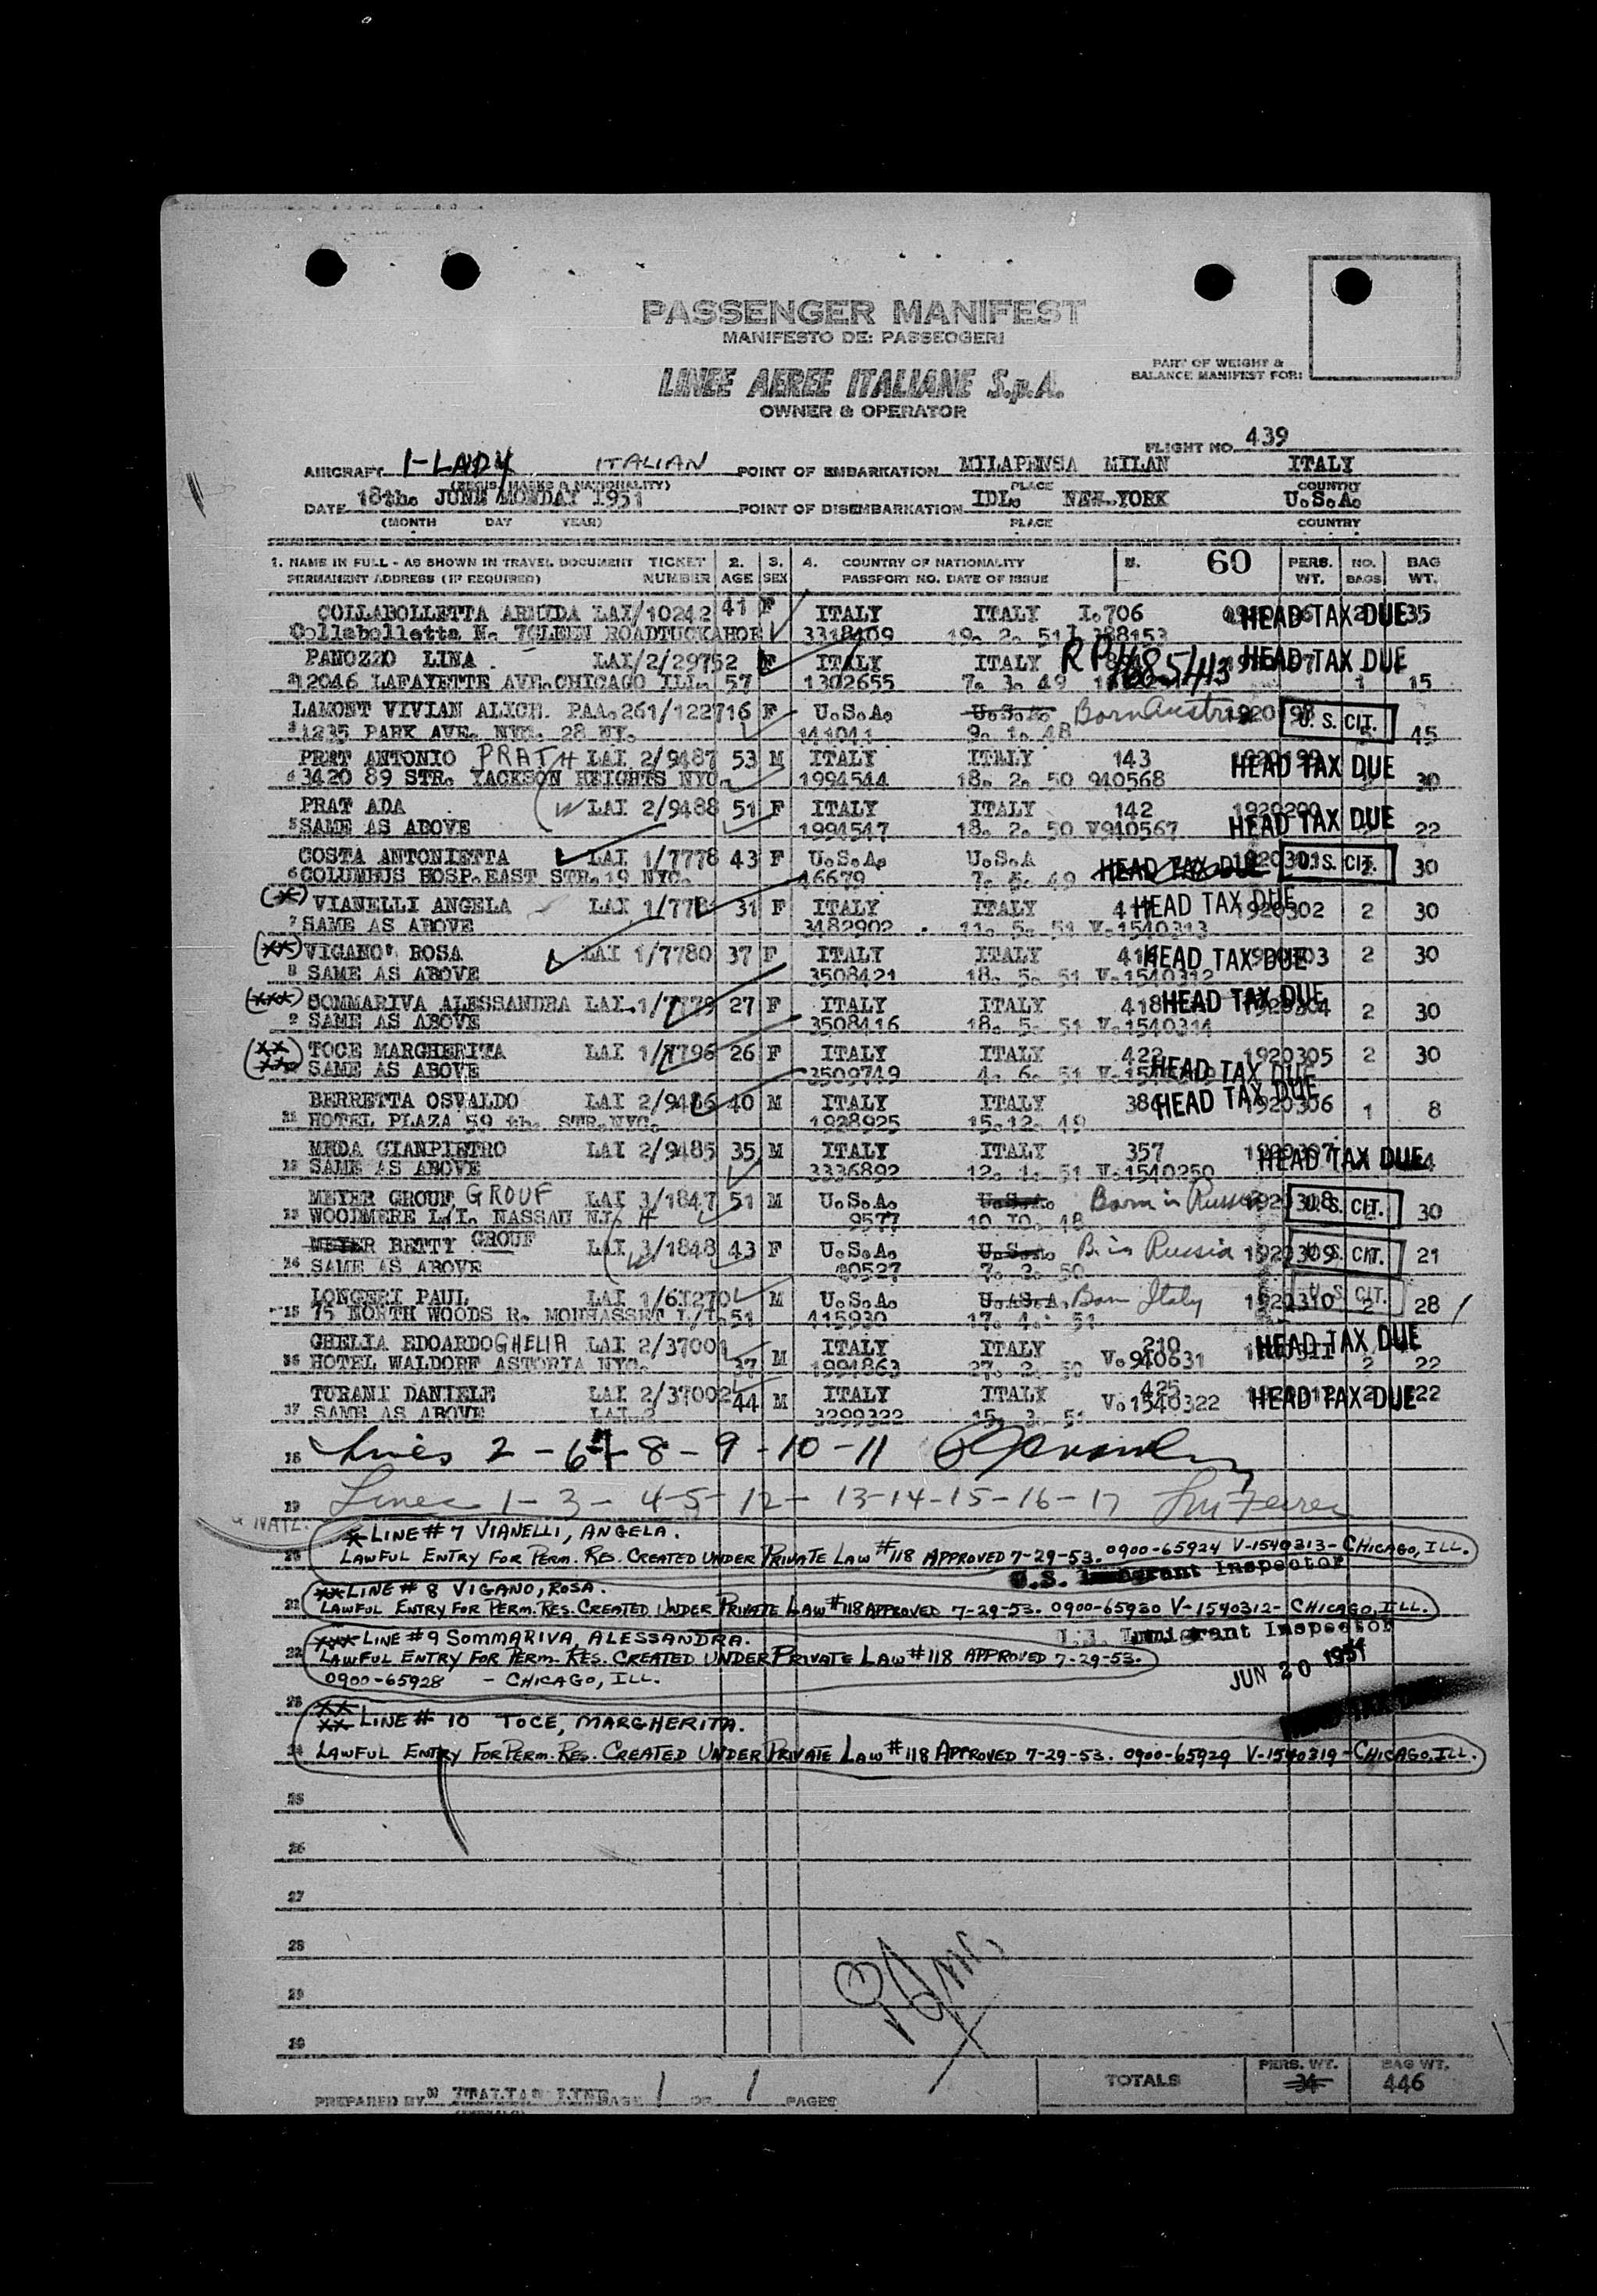 PASSENGER MANIFEST
MANIFESTO DEI PASSEGGERI
LINEE AEREE ITALIANE S.p.A.
OWNER & OPERATOR
PART OF WEIGHT &
BALANCE MANIFEST FOR:
FLIGHT NO. 439
AIRCRAFT I-LADY ITALIAN POINT OF EMBARKATION MILAPENSA MILAN ITALY
(REGIS. MARKS & NATIONALITY) PLACE COUNTRY
DATE 18th. JUNE MONDAY 1951 POINT OF DISEMBARKATION IDL. NEW-YORK U.S.A.
(MONTH DAY YEAR) PLACE COUNTRY
1. NAME IN FULL - AS SHOWN IN TRAVEL DOCUMENT TICKET 2. 3. 4. COUNTRY OF NATIONALITY 5. 60 PERS. NO. BAG
PERMANENT ADDRESS (IF REQUIRED) NUMBER AGE SEX PASSPORT NO. DATE OF ISSUE WT. BAGS WT.
COLLABOLLETTA ARMIDA LAI/10242 41 F ITALY ITALY I.706 HEAD TAX DUE 35
Collabolletta N. 3318409 19. 2. 51 I.388153
PANOZZO LINA. LAI/2/29752 F ITALY ITALY HEAD TAX DUE
2 12046 LAFAYETTE AVE.CHICAGO ILL. 57 1302655 7. 3. 49 1 15
LAMONT VIVIAN ALICE. PAA.261/122716 F U.S.A. U.S.A. Born Austria U.S. CIT.
3 1235 PARK AVE. NYC. 28 NY. 141041 9. 1. 48 45
PRAT ANTONIO PRAT H LAI 2/9487 53 M ITALY ITALY 143 HEAD TAX DUE
4 3420 89 STR. YACKSON HEIGHTS NYC. 1994544 18. 2. 50 940568 30
PRAT ADA W LAI 2/9488 51 F ITALY ITALY 142 1920200 HEAD TAX DUE
5 SAME AS ABOVE 1994547 18. 2. 50 V940567 22
COSTA ANTONIETTA LAI 1/7778 43 F U.S.A. U.S.A HEAD TAX DUE U.S. CIT.
6 COLUMBUS HOSP.EAST STR.19 NYC. 46679 7. 5. 49 2 30
(X) VIANELLI ANGELA LAI 1/778 31 F ITALY ITALY HEAD TAX DUE 1920302 2 30
7 SAME AS ABOVE 3482902 11. 5. 51 V.1540313
(XX) VIGANO' ROSA LAI 1/7780 37 F ITALY ITALY HEAD TAX DUE 2 30
8 SAME AS ABOVE 3508421 18. 5. 51 V.1540312
(XXX) SOMMARIVA ALESSANDRA LAI.1/7779 27 F ITALY ITALY 418 HEAD TAX DUE 2 30
9 SAME AS ABOVE 3508416 18. 5. 51 V.1540314
(XX XX) TOCE MARGHERITA LAI 1/7796 26 F ITALY ITALY 422 1920305 2 30
SAME AS ABOVE 3509749 4. 6. 51 HEAD TAX DUE
BERRETTA OSVALDO LAI 2/9486 40 M ITALY ITALY HEAD TAX DUE 1920306 1 8
11 HOTEL PLAZA 59 th. STR.NYC. 1928925 15.12. 49
MEDA GIANPIETRO LAI 2/9485 35 M ITALY ITALY 357 HEAD TAX DUE
12 SAME AS ABOVE 3336892 12. 1. 51 V.1540250
MEYER GROUF GROUF LAI 3/1847 51 M U.S.A. U.S.A. Born in Russia U.S. CIT.
13 WOODMERE L.I. NASSAU NJ H 9577 10 10. 48 30
MEYER BETTY GROUF LAI 3/1848 43 F U.S.A. U.S.A. B. in Russia 1920309 U.S. CIT. 21
14 SAME AS ABOVE W 7. 2. 50
LONGERI PAUL LAI 1/61270 M U.S.A. U.S.A. Born Italy 1920310 U.S. CIT. 2 28
15 75 NORTH WOODS R. MONHASSET L/I. 51 415930 17. 4. 51
GHELIA EDOARDO GHELIA LAI 2/37001 M ITALY ITALY 210 HEAD TAX DUE
16 HOTEL WALDORF ASTORIA NYC. 37 1991863 27. 2. 50 V.940631 2 22
TURANI DANIELE LAI 2/37002 44 M ITALY ITALY 425 HEAD TAX DUE 22
17 SAME AS ABOVE LAI 2 3299322 15. 3. 51 V.1540322
18 Lines 2 - 6 - 7 - 8 - 9 - 10 - 11
19 Lines 1 - 3 - 4-5 - 12 - 13-14-15-16-17
X LINE # 7 VIANELLI, ANGELA.
20 LAWFUL ENTRY FOR PERM. RES. CREATED UNDER PRIVATE LAW #118 APPROVED 7-29-53. 0900-65924 V-1540313-CHICAGO, ILL.
U.S. Immigrant Inspector
XX LINE # 8 VIGANO, ROSA.
21 LAWFUL ENTRY FOR PERM. RES. CREATED UNDER PRIVATE LAW #118 APPROVED 7-29-53. 0900-65930 V-1540312-CHICAGO, ILL.
U.S. Immigrant Inspector
XXX LINE #9 SOMMARIVA, ALESSANDRA.
22 LAWFUL ENTRY FOR PERM. RES. CREATED UNDER PRIVATE LAW #118 APPROVED 7-29-53.
0900-65928 - CHICAGO, ILL.
JUN 20 1951
23 XX XX LINE # 10 TOCE, MARGHERITA.
24 LAWFUL ENTRY FOR PERM. RES. CREATED UNDER PRIVATE LAW #118 APPROVED 7-29-53. 0900-65929 V-1540319-CHICAGO, ILL.
25
26
27
28
29
30
TOTALS PERS. WT. 34 BAG WT. 446
PREPARED BY ITALIAN LINE PAGE 1 OF 1 PAGES